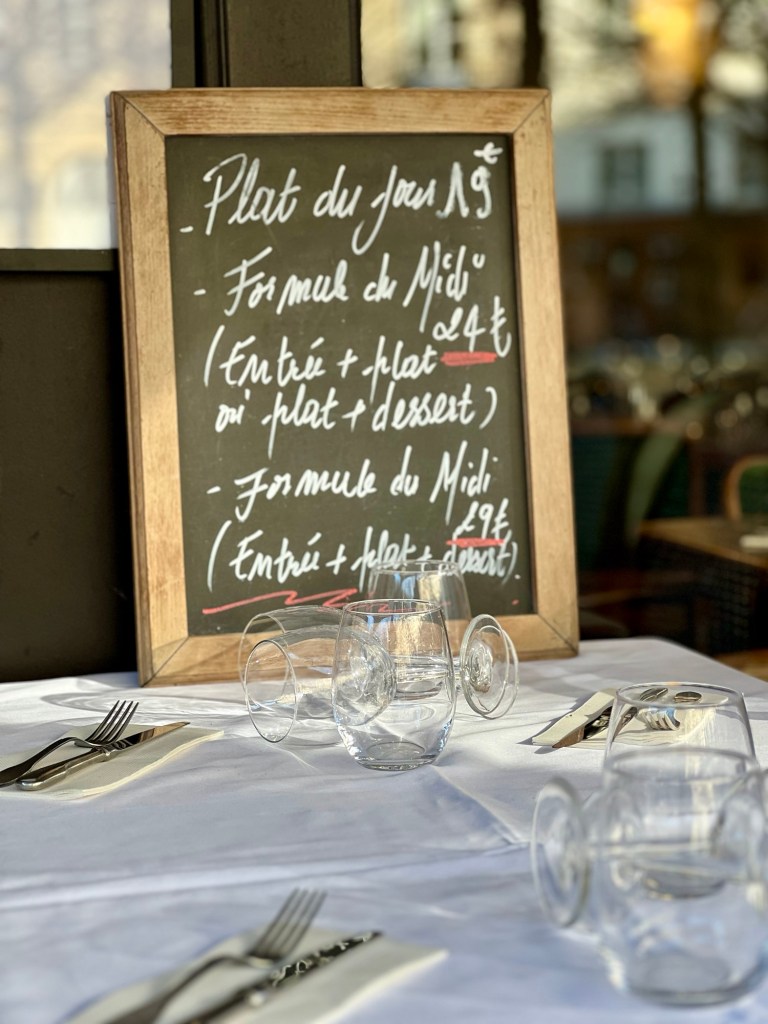 - Plat du jour 19€
- Formule du Midi
24€
(Entrée + plat
ou plat + dessert)
- Formule du Midi
29€
(Entrée + plat + dessert).